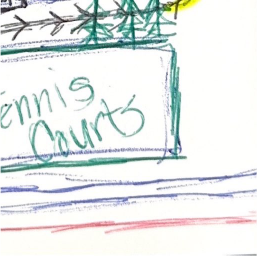 ennis
Courts